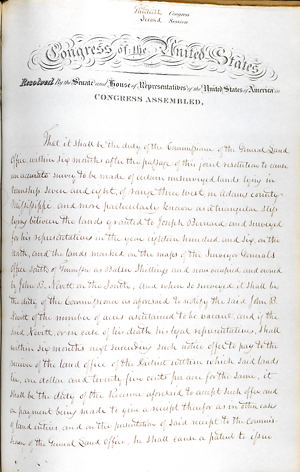 Congress
Second Session
Congress of the United States,
Resolved By the Senate and House of Representatives of the United States of America in
CONGRESS ASSEMBLED,
That it shall be the duty of the Commissioner of the General Land
Office, within six months after the passage of this joint resolution to cause
an accurate survey to be made of certain unsurveyed lands lying in
township seven and eight, of range three west in Adams county
Mississippi and more particularly known as a triangular slip
lying between the lands granted to Joseph Bernard and surveyed
for his representatives in the year eighteen hundred and six, on the
North, and the lands marked on the maps of the Surveyor General's
office south of Tennessee as and now occupied and owned
by John B. Nevitt on the South, And when so surveyed it shall be
the duty of the Commissioner as aforesaid to notify the said John B.
Nevitt of the number of acres ascertained to be vacant, and if the
said Nevitt, or in case of his death his legal representatives, shall
within six months next succeeding such notice offer to pay to the
receiver of the land office of the District within which said lands
lie, one dollar and twenty five cents per acre for the same, it
shall be the duty of the Receiver aforesaid to accept such offer and
on payment being made to give a receipt therefor as in other cases
of land entries, and on the presentation of said receipt to the Commis-
sioner of the General Land Office, he shall cause a patent to issue